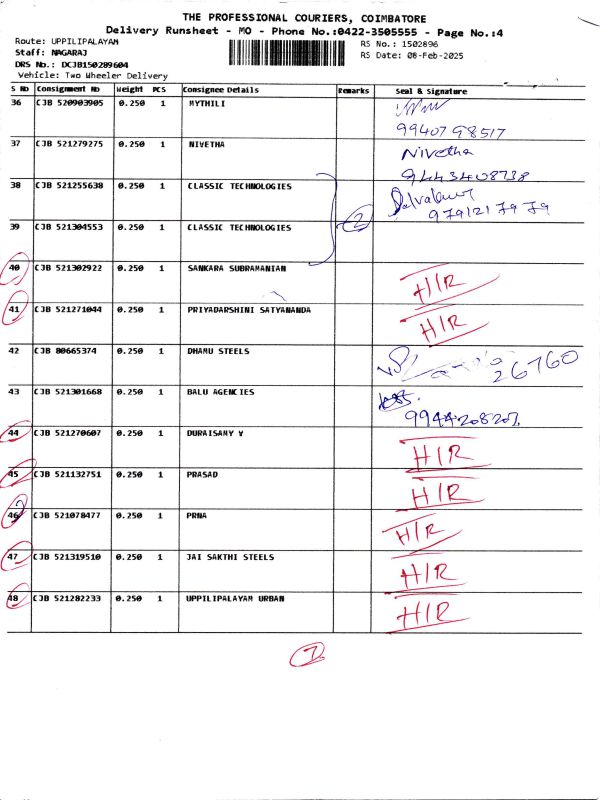 THE PROFESSIONAL COURIERS, COIMBATORE
Delivery Runsheet - MO - Phone No.:0422-3505555 - Page No.:4
Route: UPPILIPALAYAM
RS No.: 1502896
Staff: NAGARAJ
RS Date: 08-Feb-2025
DRS No.: DCJB150289604
Vehicle: Two Wheeler Delivery
S No Consignment No Weight PCS Consignee Details Remarks Seal & Signature
36 CJB 520903905 0.250 1 MYTHILI
9940798517
37 CJB 521279275 0.250 1 NIVETHA Nivetha
9443408738
38 CJB 521255638 0.250 1 CLASSIC TECHNOLOGIES
9791217979
2
39 CJB 521304553 0.250 1 CLASSIC TECHNOLOGIES
40 CJB 521302922 0.250 1 SANKARA SUBRAMANIAN H/R
41 CJB 521271044 0.250 1 PRIYADARSHINI SATYANANDA H/R
42 CJB 80665374 0.250 1 DHAMU STEELS
26760
43 CJB 521301668 0.250 1 BALU AGENCIES
44 CJB 521270607 0.250 1 DURAISAMY V H/R
45 CJB 521132751 0.250 1 PRASAD H/R
46 CJB 521078477 0.250 1 PRNA H/R
47 CJB 521319510 0.250 1 JAI SAKTHI STEELS H/R
48 CJB 521282233 0.250 1 UPPILIPALAYAM URBAN H/R
7